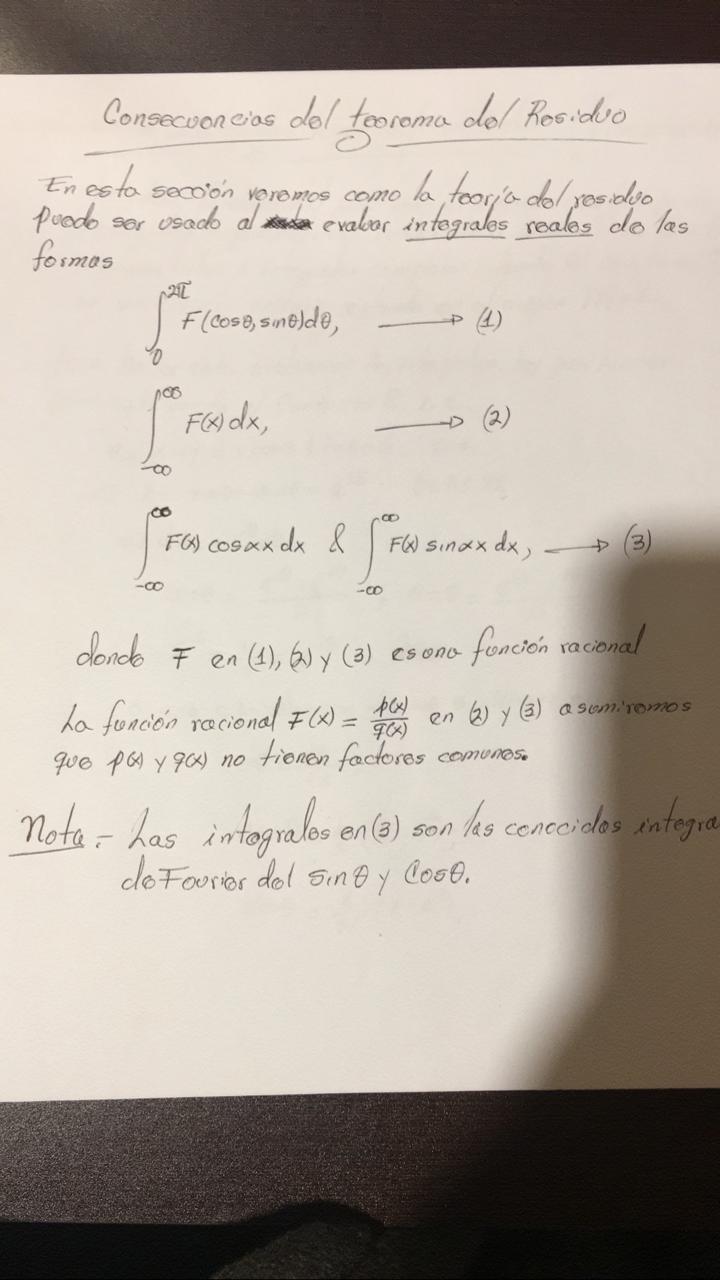 Consecuencias del teorema del Residuo
En esta sección veremos como la teoría del residuo
puede ser usado al evaluar integrales reales de las
formas
∫₀^{2π} F(cosθ, sinθ)dθ, → (1)
∫_{-∞}^{∞} F(x) dx, → (2)
∫_{-∞}^{∞} F(x) cosαx dx & ∫_{-∞}^{∞} F(x) sinαx dx, → (3)
donde F en (1), (2) y (3) es una función racional
La función racional F(x) = p(x)/q(x) en (2) y (3) asumiremos
que p(x) y q(x) no tienen factores comunes.
Nota.- Las integrales en (3) son las conocidas integra
de Fourier del sinθ y Cosθ.